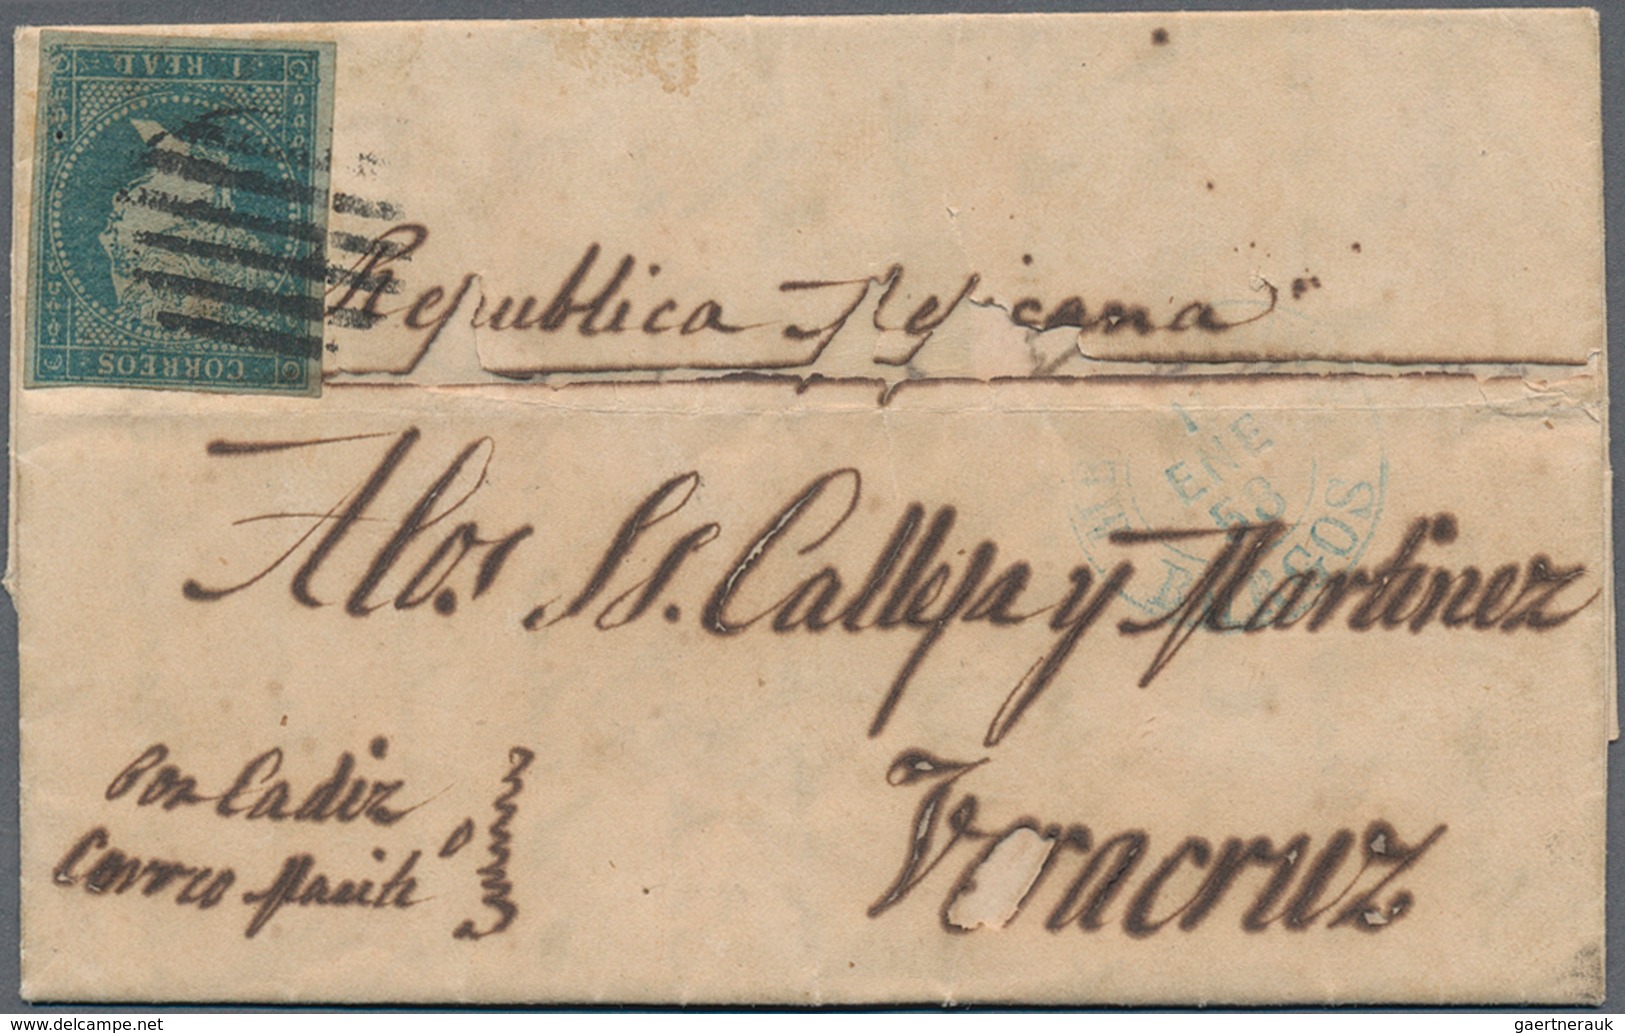 1. REAL
CORREOS
Republica Mejicana
A los SS. Callejа y Martinez
Veracruz
Por Cadiz
Correo Marit°
1
ENE
58
BURGOS
www.delcampe.net
gaertnerauk